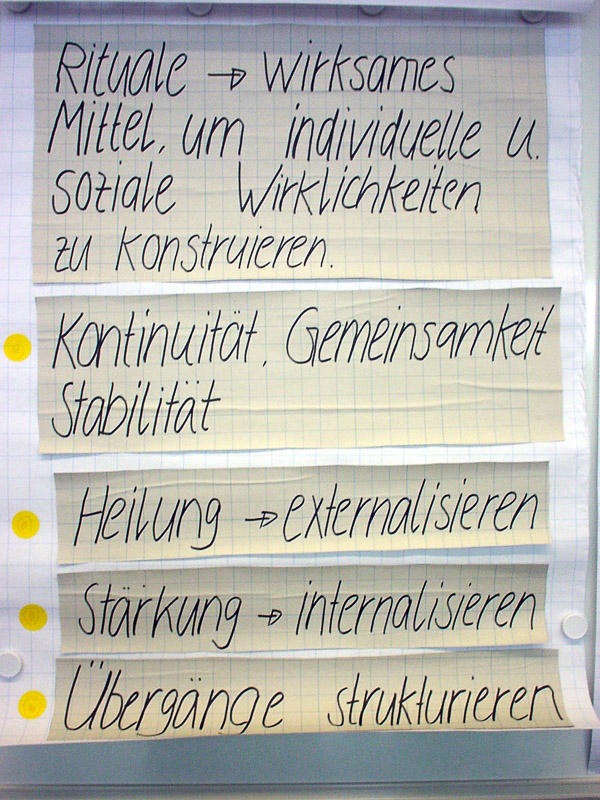 Rituale → wirksames
Mittel, um individuelle u.
soziale Wirklichkeiten
zu konstruieren.
Kontinuität, Gemeinsamkeit
Stabilität
Heilung → externalisieren
Stärkung → internalisieren
Übergänge strukturieren